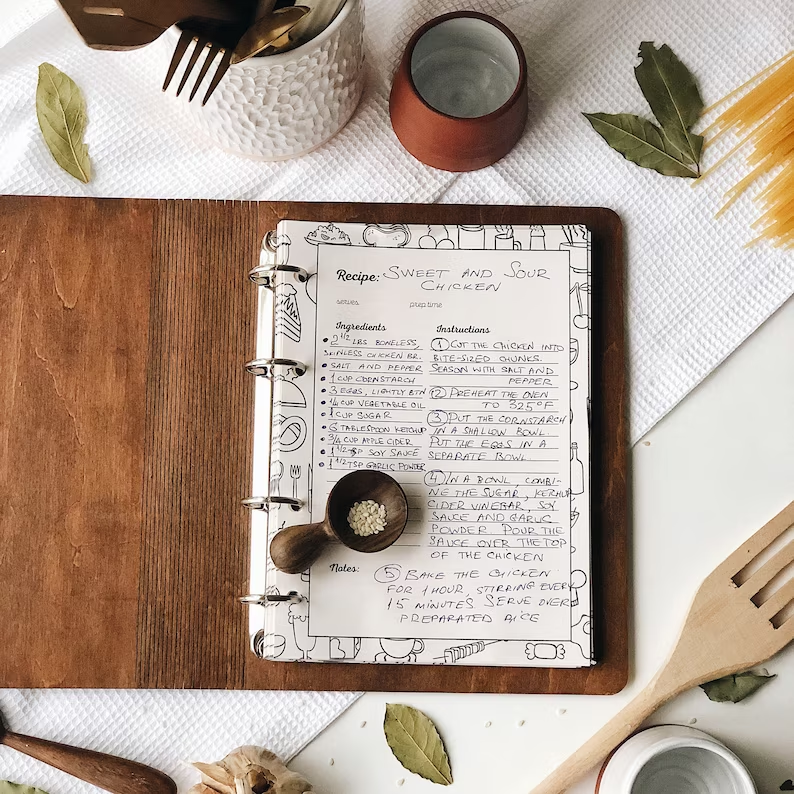 Recipe: SWEET AND SOUR
CHICKEN
serves
prep time
Ingredients
2 1/2 LBS BONELESS,
SKINLESS CHICKEN BR.
SALT AND PEPPER
1 CUP CORNSTARCH
3 EGGS, LIGHTLY BTN
1/4 CUP VEGETABLE OIL
1 CUP SUGAR
6 TABLESPOON KETCHUP
3/4 CUP APPLE CIDER
1 1/2 TSP SOY SAUCE
1 1/2 TSP GARLIC POWDER
Instructions
1 CUT THE CHICKEN INTO
BITE-SIZED CHUNKS.
SEASON WITH SALT AND
PEPPER
2 PREHEAT THE OVEN
TO 325°F
3 PUT THE CORNSTARCH
IN A SHALLOW BOWL
PUT THE EGGS IN A
SEPARATE BOWL
4 IN A BOWL, COMBI-
NE THE SUGAR, KERHUP
CIDER VINEGAR, SOY
SAUCE AND GARLIC
POWDER POUR THE
SAUCE OVER THE TOP
OF THE CHICKEN
Notes:
5 BAKE THE CHICKEN
FOR 1 HOUR, STIRRING EVERY
15 MINUTES SERVE OVER
PREPARATED RICE